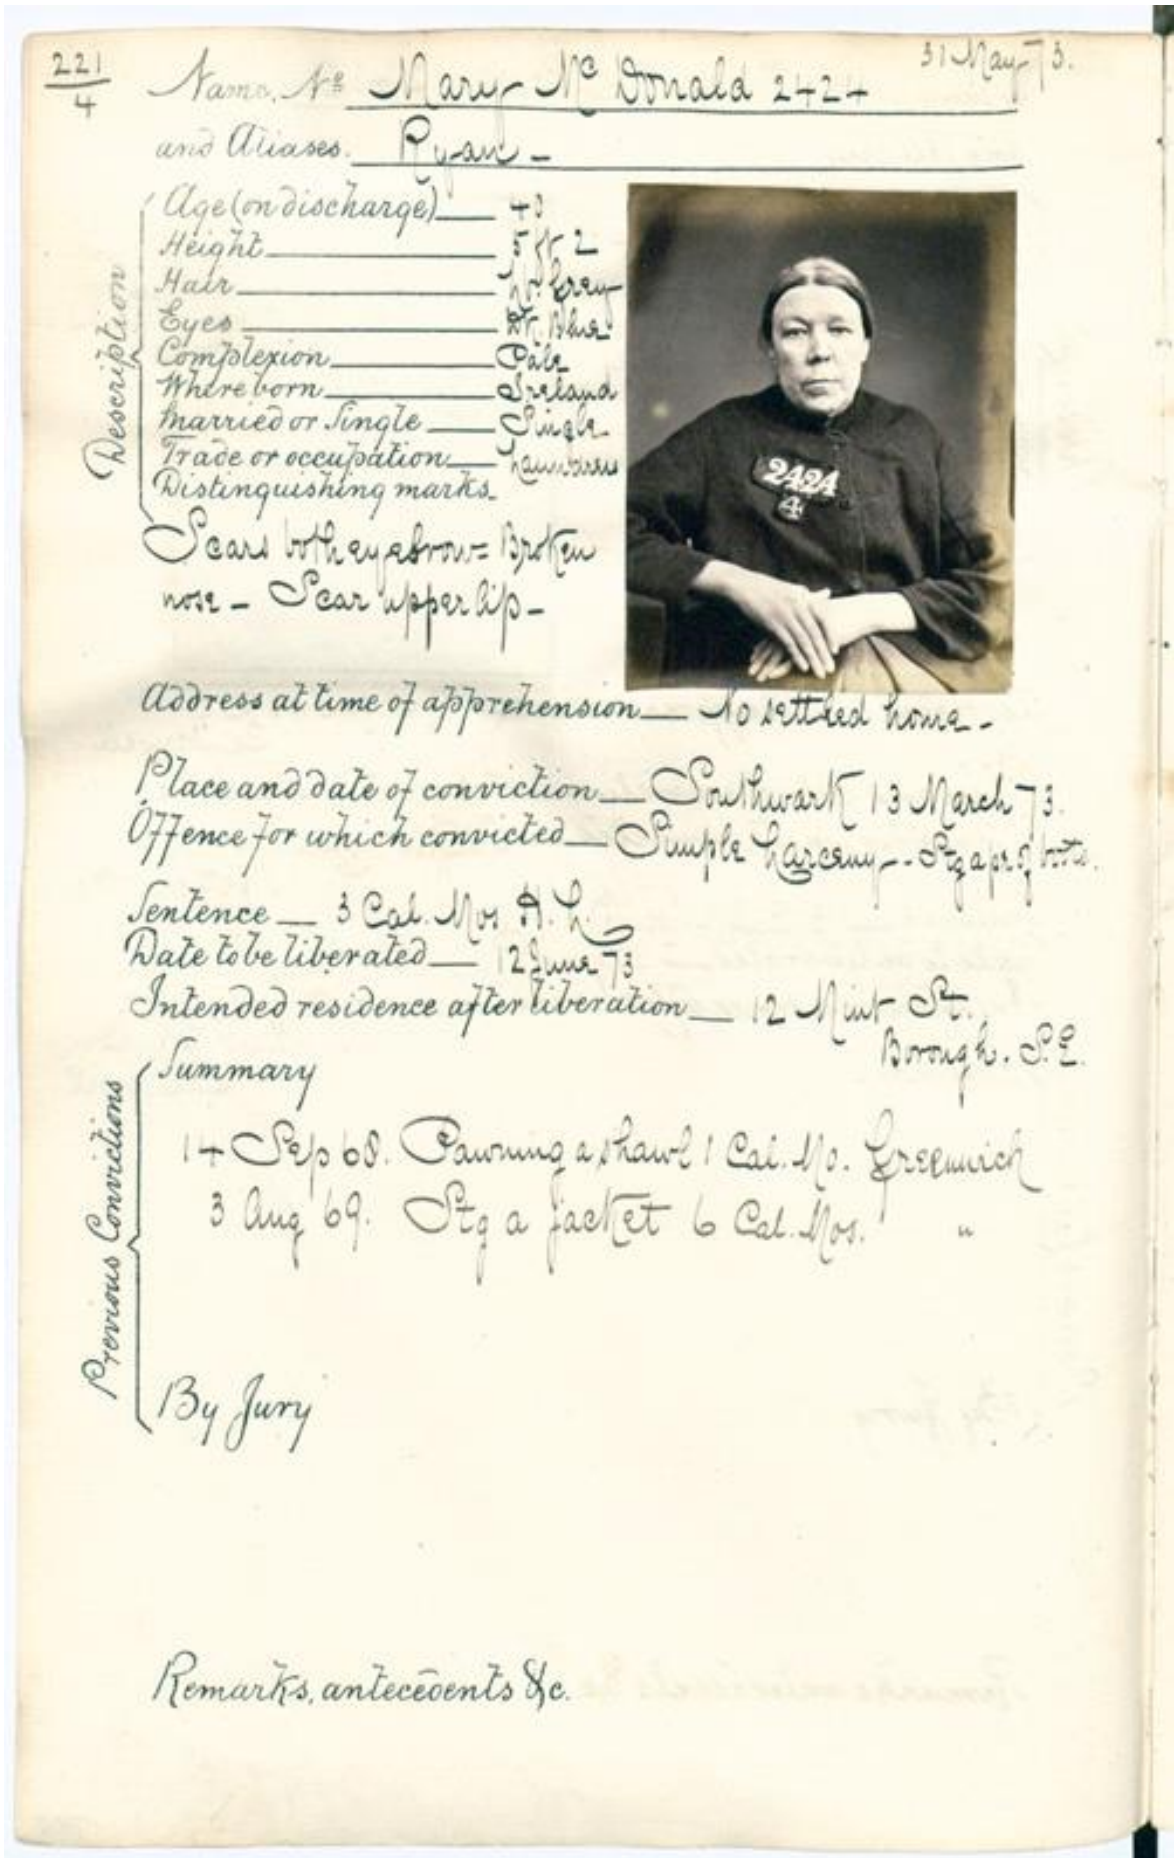 221
4
31 May 73.
Name, No Mary McDonald 2424
and Aliases. Ryan -
Description
Age (on discharge) 43
Height 5 ft 2
Hair Lt. Grey
Eyes Dk. Blue
Complexion Pale
Where born Ireland
Married or Single Single
Trade or occupation Laundress
Distinguishing marks.
Scars both eyebrow= Broken
nose - Scar upper lip -
2424
4
Address at time of apprehension No settled home -
Place and date of conviction Southwark 13 March 73.
Offence for which convicted Simple Larceny - Stg a pr of boots.
Sentence 3 Cal. Mos H. L.
Date to be liberated 12 June 73
Intended residence after liberation 12 Mint St.
Borough. S.E.
Previous Convictions
Summary
14 Sep 68. Pawning a shawl 1 Cal. Mo. Greenwich
3 Aug 69. Stg a jacket 6 Cal. Mos. "
By Jury
Remarks, antecedents &c.